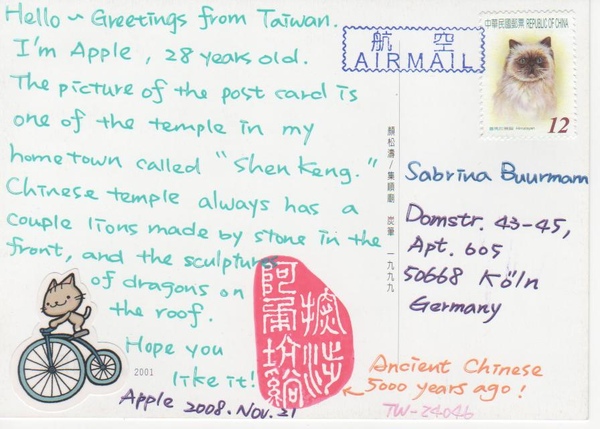 Hello ~ Greetings from Taiwan.
I'm Apple, 28 years old.
The picture of the post card is
one of the temple in my
hometown called "Shen Keng."
Chinese temple always has a
couple lions made by stone in the
front, and the sculptures
of dragons on
the roof.
Hope you
like it!
Apple 2008. Nov. 21
2001
航 空
AIRMAIL
中華民國郵票 REPUBLIC OF CHINA
12
顏松濤/集順廟 炭筆 一九九九
Sabrina Buurmam
Domstr. 43-45,
Apt. 605
50668 Köln
Germany
Ancient Chinese
5000 years ago!
TW-24046